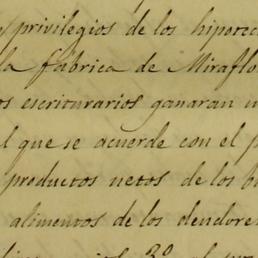 privilegios de los hipotec
la fabrica de Miraflo
os escriturarios ganaran u
l que se acuerde con el p
productos netos de los b
alimentos de los deudore
3º